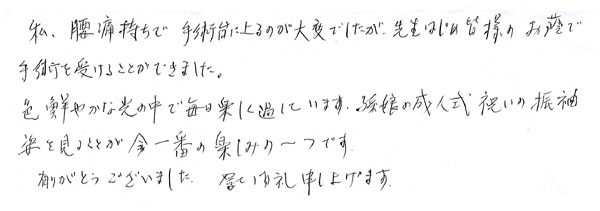 私、腰痛持ちで手術台に上るのが大変でしたが、先生はじめ皆様のお蔭で
手術を受けることができました。
色鮮やかな光の中で毎日楽しく過しています。孫娘の成人式祝いの振袖
姿を見ることが今一番の楽しみの一つです。
有りがとうございました。厚く御礼申し上げます。